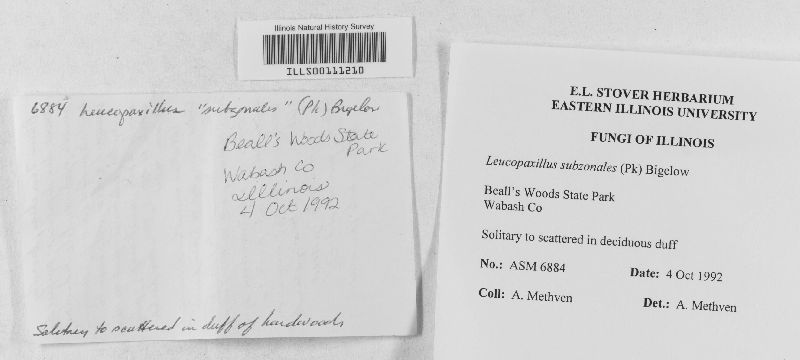 Illinois Natural History Survey
ILLS00111210
6884 Leucopaxillus "subzonales" (Pk) Bigelow
Beall's Woods State
Park
Wabash Co
Illinois
4 Oct 1992
Solitary to scattered in duff of hardwoods
E.L. STOVER HERBARIUM
EASTERN ILLINOIS UNIVERSITY
FUNGI OF ILLINOIS
Leucopaxillus subzonales (Pk) Bigelow
Beall's Woods State Park
Wabash Co
Solitary to scattered in deciduous duff
No.: ASM 6884 Date: 4 Oct 1992
Coll: A. Methven Det.: A. Methven